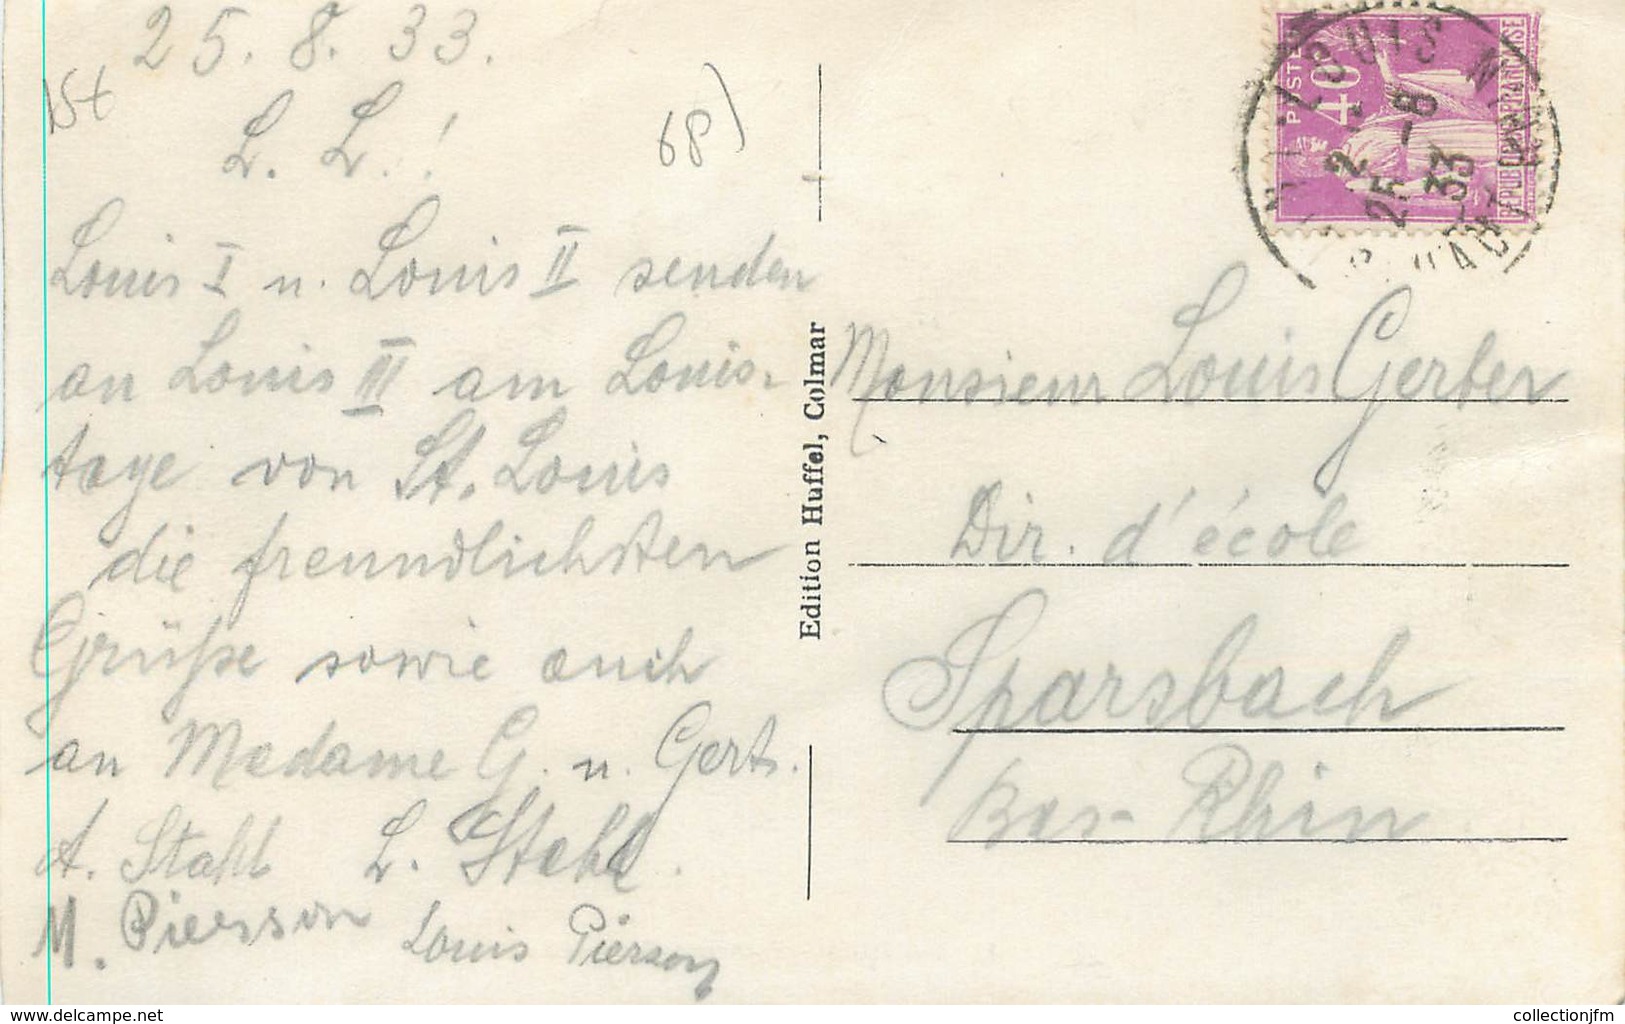 25.8.33.
15t
68)
L. L.!
Louis I u. Louis II senden
an Louis III am Louis-
tage von St. Louis
die freundlichsten
Grüße sowie auch
an Madame G. u. Gert.
A. Stahl L. Stahl.
M. Pierson Louis Pierson
Edition Huffel, Colmar
POSTES
40c
REPUBLIQUE FRANÇAISE
LOUIS
25 -8
33
Monsieur Louis Gerber
Dir. d'école
Sparsbach
Bas-Rhin
www.delcampe.net
collectionjfm